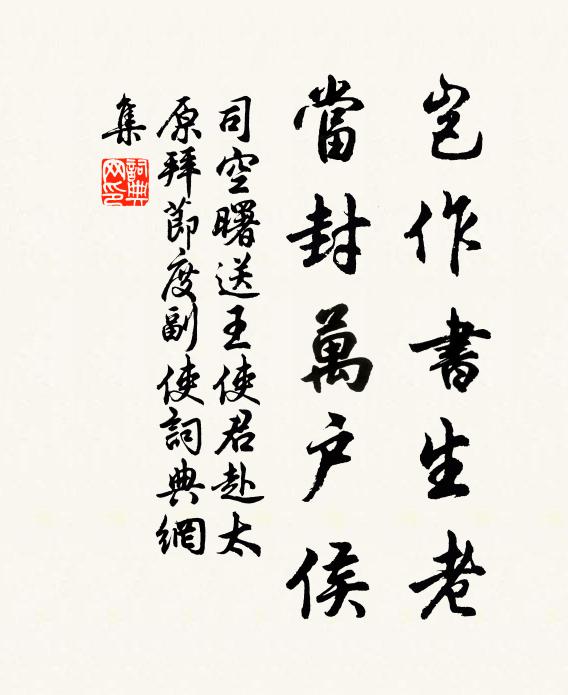 豈作書生老
當封萬戶侯
司空曙送王使君赴太
原拜節度副使詞典網
集
詞典
网印